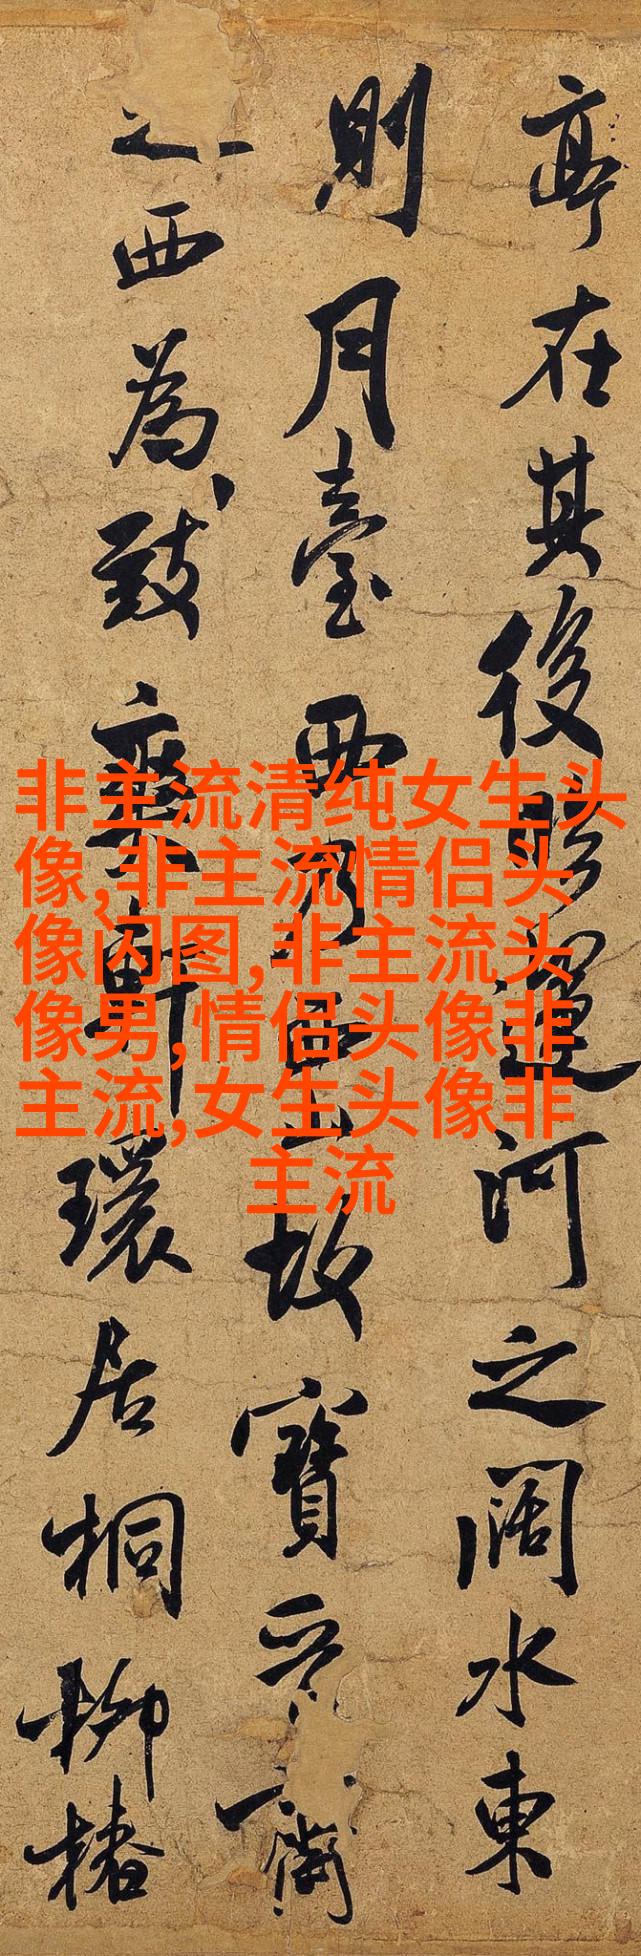 亭在其後臨運河之闊水東
則月臺西乃西山故寶晉齋
之西為致爽軒環居桐柳椿
非主流清纯女生头
像,非主流情侣头
像闪图,非主流头
像男,情侣头像非
主流,女生头像非
主流